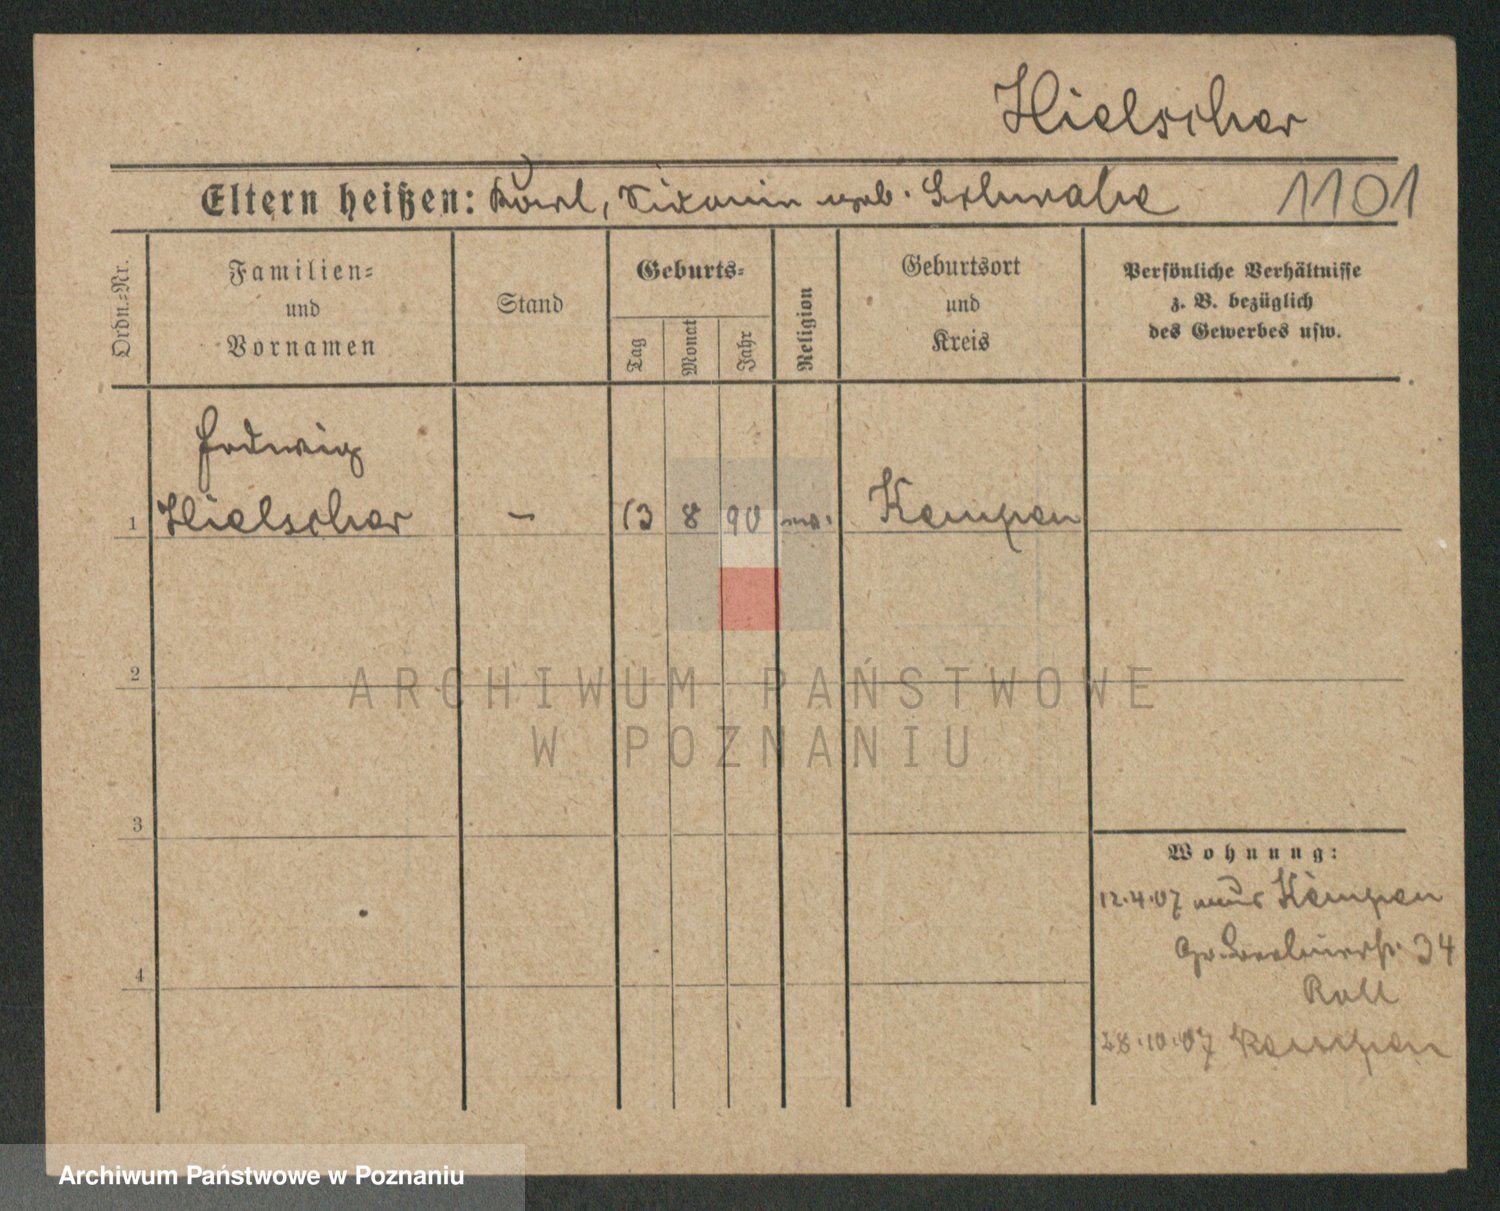 Hielscher
Eltern heißen: Karl, Sidonie geb. Schwabe 1101
Ordn.-Nr.
Familien-
und
Vornamen
Stand
Geburts-
Tag
Monat
Jahr
Religion
Geburtsort
und
Kreis
Persönliche Verhältnisse
z. B. bezüglich
des Gewerbes usw.
Hedwig
1 Hielscher – 13 8 90 ev. Kempen
2
ARCHIWUM PAŃSTWOWE
W POZNANIU
3
Wohnung:
12.4.07 aus Kempen
Gr. Berlinerstr. 34
4
28.10.07 Kempen
Archiwum Państwowe w Poznaniu